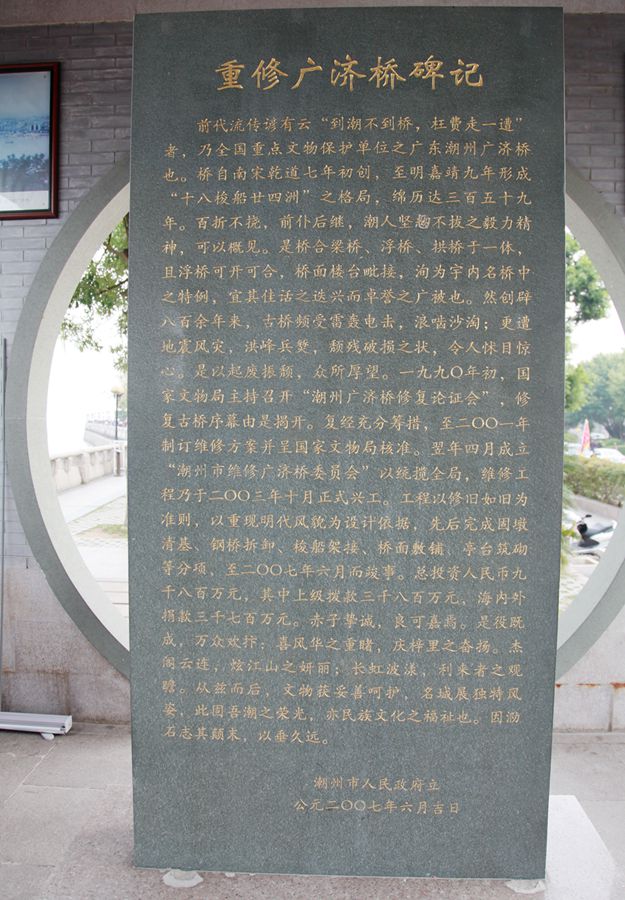 重修广济桥碑记
前代流传谚有云“到潮不到桥，枉费走一遭”
者，乃全国重点文物保护单位之广东潮州广济桥
也。桥自南宋乾道七年初创，至明嘉靖九年形成
“十八梭船廿四洲”之格局，绵历达三百五十九
年。百折不挠，前仆后继，潮人坚韧不拔之毅力精
神，可以概见。是桥合梁桥、浮桥、拱桥于一体，
且浮桥可开可合，桥面楼台毗接，洵为宇内名桥中
之特例，宜其佳话之迭兴而卓誉之广被也。然创辟
八百余年来，古桥频受雷轰电击，浪啮沙淘；更遭
地震风灾，洪峰兵燹，颓残破损之状，令人怵目惊
心。是以起废振颓，众所厚望。一九九〇年初，国
家文物局主持召开“潮州广济桥修复论证会”，修
复古桥序幕由是揭开。复经充分筹措，至二〇〇一年
制订维修方案并呈国家文物局核准。翌年四月成立
“潮州市维修广济桥委员会”以统揽全局，维修工
程乃于二〇〇三年十月正式兴工。工程以修旧如旧为
准则，以重现明代风貌为设计依据，先后完成固墩
清基、钢桥拆卸、梭船架接、桥面敷铺、亭台筑砌
等分项，至二〇〇七年六月而竣事。总投资人民币九
千八百万元，其中上级拨款三千八百万元，海内外
捐款三千七百万元。赤子挚诚，良可嘉焉。是役既
成，万众欢抃；喜风华之重睹，庆梓里之奋扬。杰
阁云连，炫江山之妍丽；长虹波漾，利来者之观
瞻。从兹而后，文物获妥善呵护，名城展独特风
姿，此固吾潮之荣光，亦民族文化之福祉也。因泐
石志其颠末，以垂久远。
潮州市人民政府立
公元二〇〇七年六月吉日